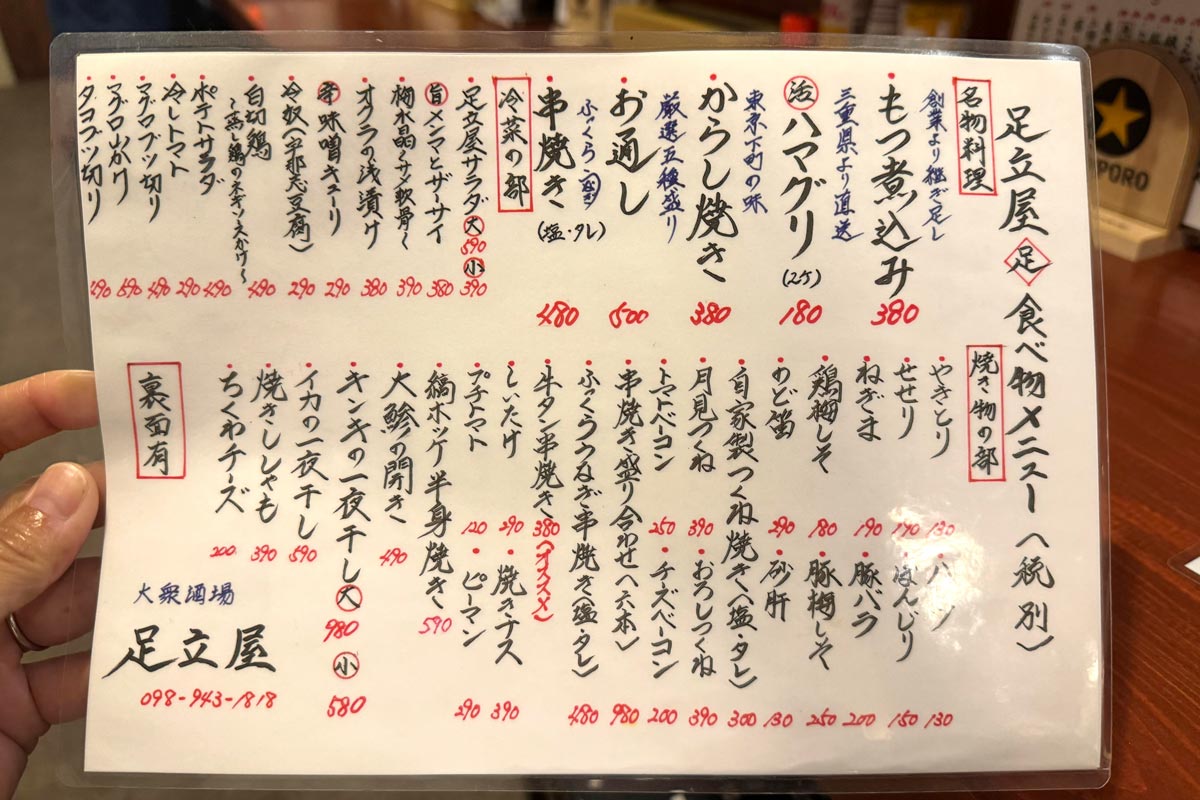 足立屋 足 食べ物メニュー(税別)
名物料理
創業より継ぎ足し
・もつ煮込み 380
三重県より直送
活ハマグリ(2ケ) 180
東京下町の味
・からし焼き 380
厳選五種盛り
・お通し 500
串焼き(塩・タレ) 480
冷菜の部
・足立屋サラダ 大 590 小 390
旨メンマとザーサイ 380
・梅水晶〜サメ軟骨〜 390
・オクラの浅漬け 380
辛味噌キューリ 290
・冷奴(宇那志豆腐) 290
・白切鶏 490
〜蒸し鶏のネギソースかけ〜
・ポテトサラダ 490
・冷しトマト 290
・マグロブツ切り 490
・マグロ山かけ 590
・タコブツ切り 490
焼き物の部
・やきとり 130
・ハツ 130
・せせり 190
・ぼんじり 150
・ねぎま 190
・豚バラ 200
・鶏梅しそ 180
・豚梅しそ 250
・のど笛 290
・砂肝 130
・自家製つくね焼き(塩・タレ) 300
・月見つくね 390
・おろしつくね 390
・トマトベーコン 250
・チズベーコン 200
・串焼き盛り合わせ(六本) 980
・ふっくらうなぎ串焼き(塩・タレ) 480
・牛タン串焼き 380(オススメ)
・しいたけ 290
・焼きナス 390
・プチトマト 120
・ピーマン 290
・縞ホッケ半身焼き 590
・大鯵の開き 490
・キンキの一夜干し 大 980 小 580
・イカの一夜干し 590
・焼きししゃも 390
・ちくわチーズ 200
裏面有
大衆酒場
足立屋
098-943-1818